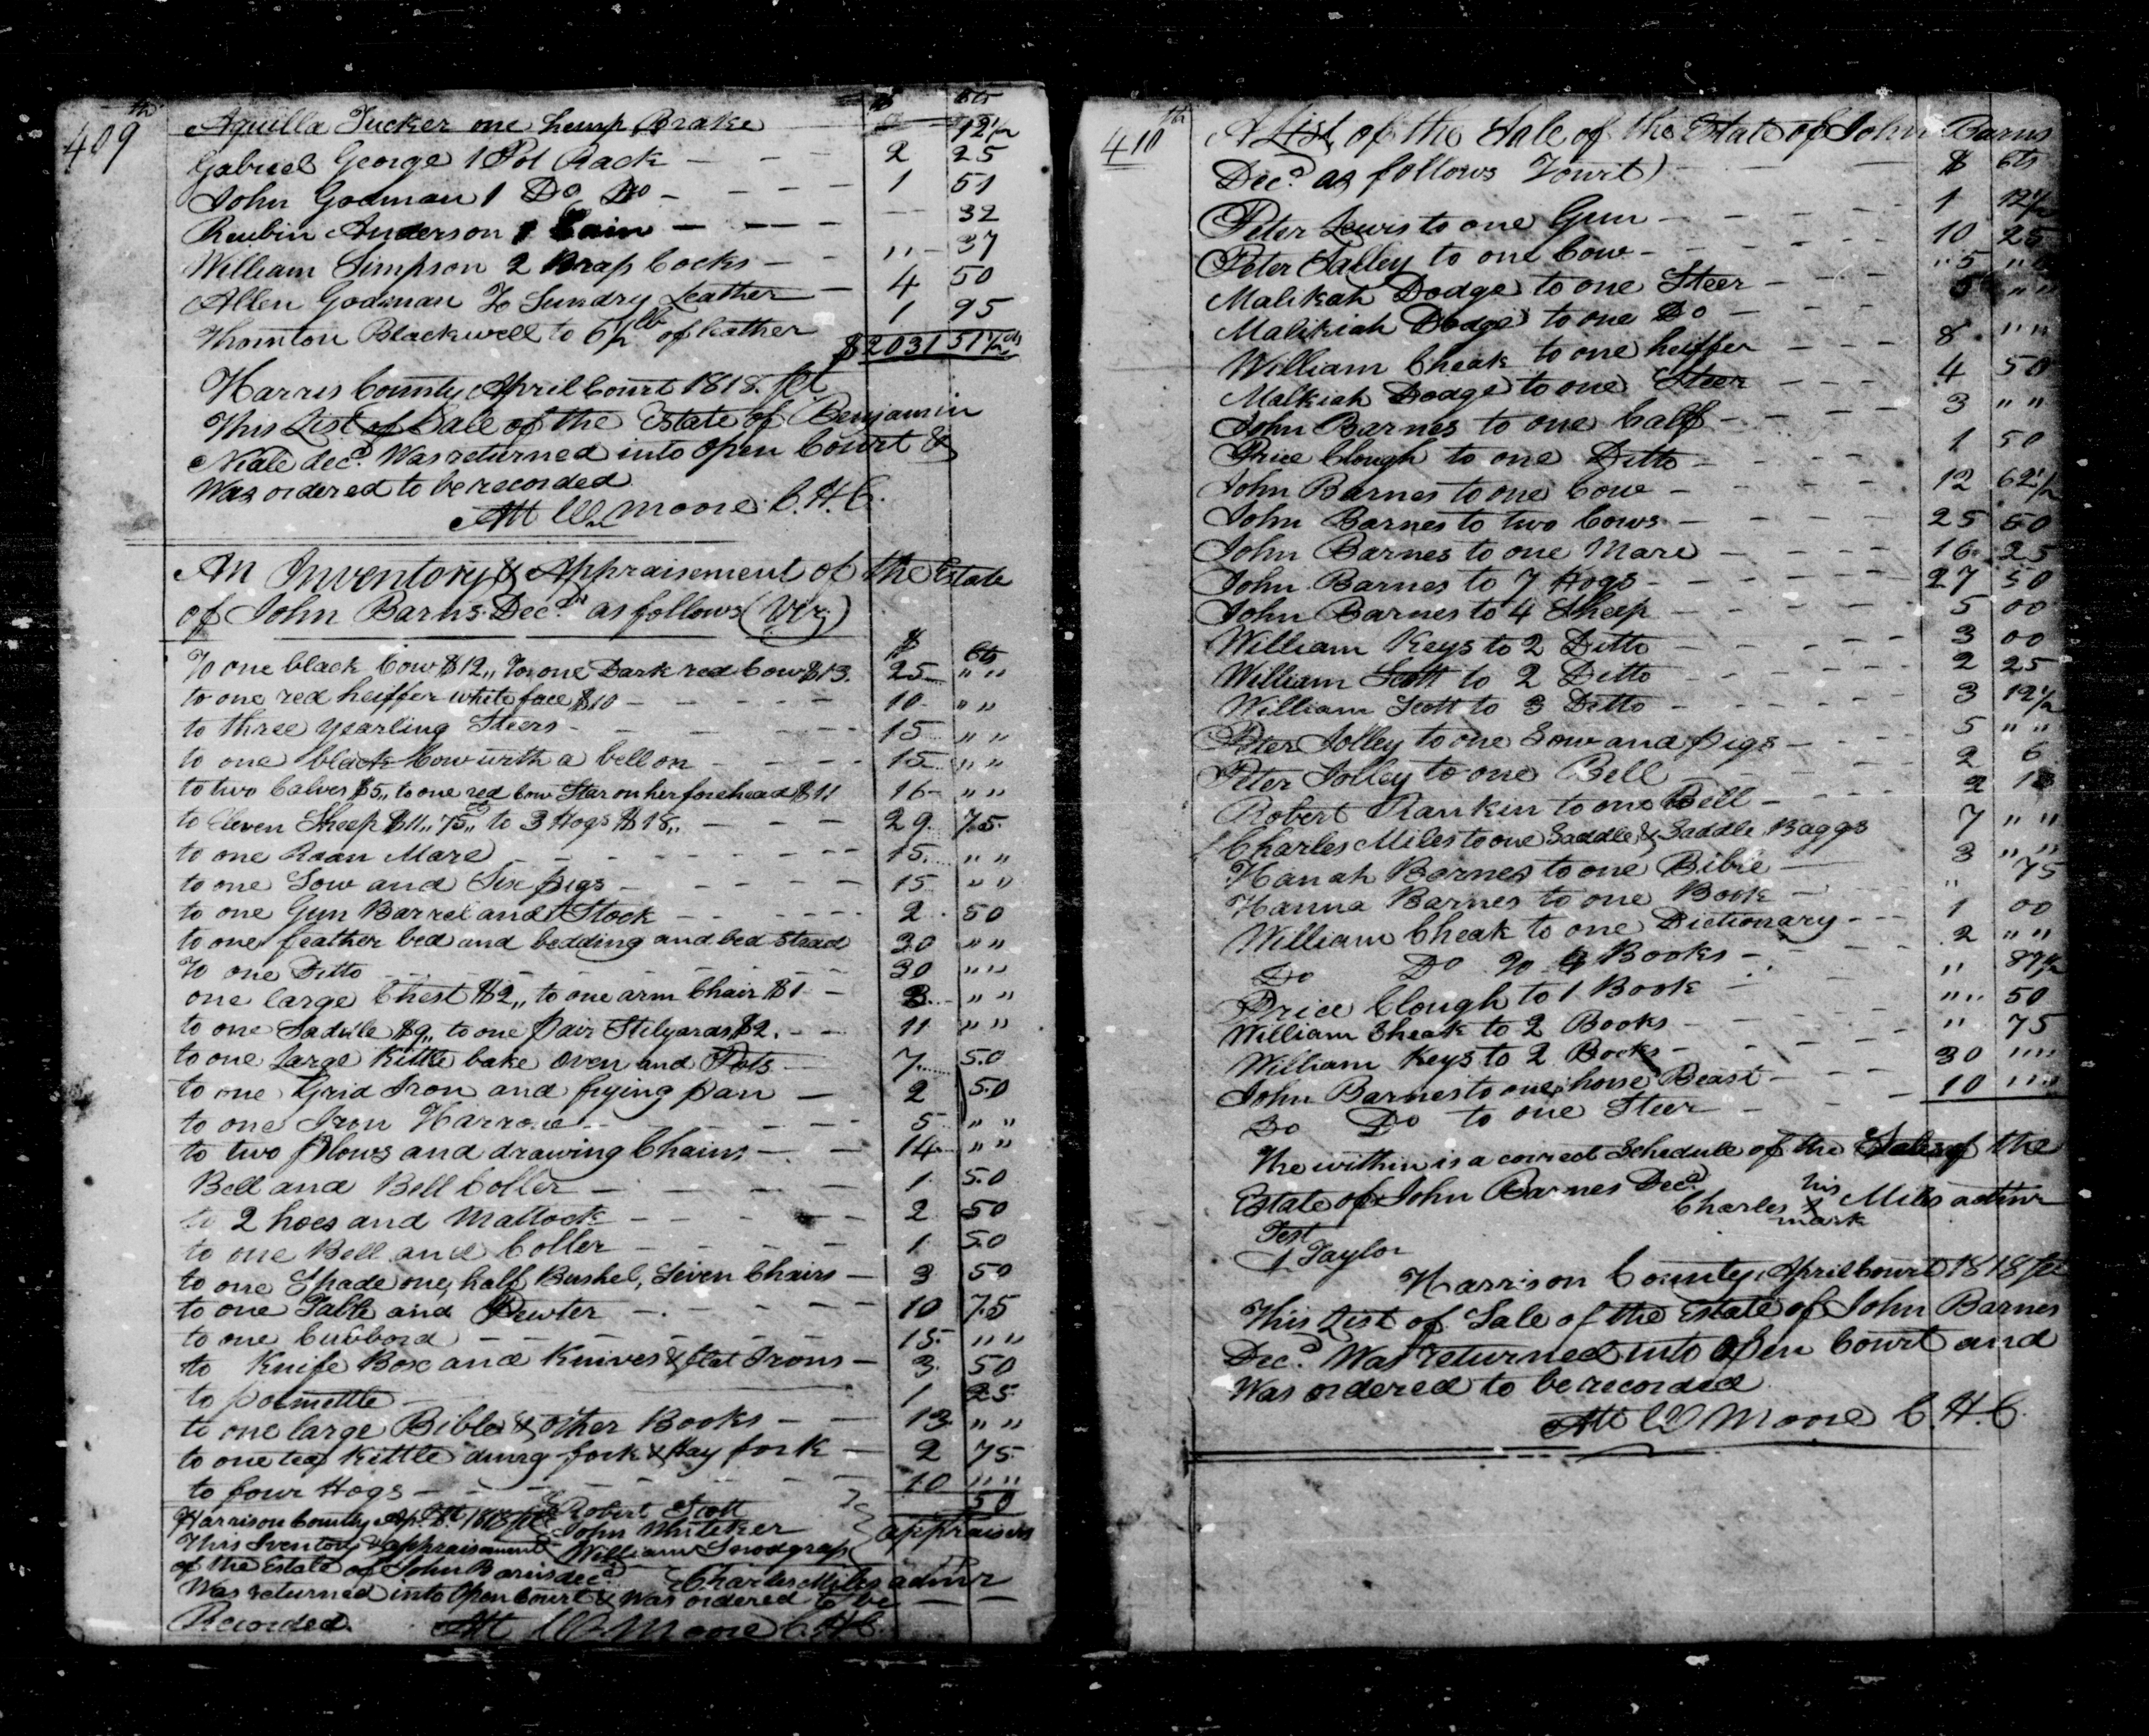 409th
$ cts
Aquilla Tucker one hemp Brake 12 1/2
Gabriel George 1 Pot Rack — — — 2 25
John Godman 1 Do Do — — — — 1 51
Reubin Anderson 1 — — — — 32
William Simpson 2 Cocks — — " — 37
Allen Godman To Sundry Leather — 4 50
Thornton Blackwell to 6 1/2 lb of leather 1 95
$2031 51 1/2 cts
Harris County April Court 1818. Sct
This List of Sale of the Estate of Benjamin
Neale decd. Was returned into open Court &
Was ordered to be recorded
Att Wm Moore C. H. C.
An Inventory & Appraisement of the Estate
of John Barns Decd. as follows (Viz)
$ Cts
To one black Cow $12,, To one Dark red Cow $13. 25 " "
to one red heiffer white face $10 — — — — — 10. " "
to three yearling Steers — — — — — 15 " "
to one black Cow with a bell on — — — — 15 " "
to two Calves $5,, to one red Cow Star on her forehead $11 16 " "
to Eleven Sheep $11,, 75,, to 3 Hogs $18,, — — — 29. 75.
to one Roan Mare — — — — — — — 15. " "
to one Sow and Six pigs — — — — — — 15 " "
to one Gun Barrel and Stock — — — — — 2. 50
to one feather bed and bedding and bed stead 30 " "
To one Ditto — — — — — — — 30 " "
one large Chest $2,, to one arm Chair $1 — 3. " "
to one Saddle $9,, to one pair Stilyards $2. — — 11 " "
to one Large Kittle bake oven and Pots — 7. 50
to one Grid Iron and frying pan — 2 50
to one Iron Harrow — — — — — — 5 " "
to two plows and drawing Chains — — — 14 " "
Bell and Bell Coller — — — — — 1. 50
to 2 hoes and Mattock — — — — — 2 50
to one Bell and Coller — — — — — 1. 50
to one Spade one half Bushel, Seven Chairs — 3 50
to one Table and Pewter — — — — — — 10 75
to one Cubbord — — — — — — — 15. " "
to Knife Box and Knives & flat Irons — 3. 50
to potmettle — 1 25.
to one large Bible & other Books — — 13 " "
to one tea Kittle dung fork & Hay fork — 2 75.
to four Hogs — — — — — — — 10 " "
50
Harrison County Ap Ct. 1818 Sct Robert Scott
This Iventory & appraisement John Whiteker
of the Estate of John Barns decd William Snodgrass appraisers
Charles Miles admr
Was returned into Open Court & Was ordered to be — —
Recorded. Att Wm Moore C. H. C.
410th
A List of the Sale of the Estate of John Barns
Decd. as follows Towit) $ Cts
Peter Lewis to one Gun — — — — — 1 12 1/2
Peter Talley to one Cow — — — — — 10 25
Malikah Dodge to one Steer — — — " 5 " "
Malikiah Dodge to one Do — — — 5 " "
William Cheak to one heiffer — — — 8. " "
Malkiah Dodge to one Steer — — — 4 50
John Barnes to one Calf — — — — 3 " "
Price Clough to one Ditto — — — — 1 50
John Barnes to one Cow — — — — 12 62 1/2
John Barnes to two Cows — — — — 25 50
John Barnes to one Mare — — — — 16. 25
John Barnes to 7 Hogs — — — — — 27 50
John Barnes to 4 Sheep — — — — — 5 00
William Keys to 2 Ditto — — — — — 3 00
William Scott to 2 Ditto — — — — — 2 25
William Scott to 3 Ditto — — — — — 3 12 1/2
Peter Jolley to one Sow and pigs — — — 5 " "
Peter Jolley to one Bell — — — — 2 6
Robert Rankin to one Bell — — — — 2 13
Charles Miles to one Saddle & Saddle Baggs 7 " "
Hanah Barnes to one Bible — — 3 " "
Hanna Barnes to one Book — — " 75
William Cheak to one Dictionary — — 1 00
Do Do To 4 Books — — — 2 " "
Price Clough to 1 Book — — " 87 1/2
William Cheak to 2 Books — — — " " 50
William Keys to 2 Books — — — — " 75
John Barnes to one horse Beast — — — 30 " "
Do Do to one Steer — — — 10 " "
The within is a correct Schedule of the Sales of the
Estate of John Barnes Decd
his
Charles X Miles admr
mark
Test
Taylor
Harrison County, April Court 1818 Sct
This List of Sale of the Estate of John Barnes
Decd. Was returned into Open Court and
Was ordered to be recorded
Att Wm Moore C. H. C.